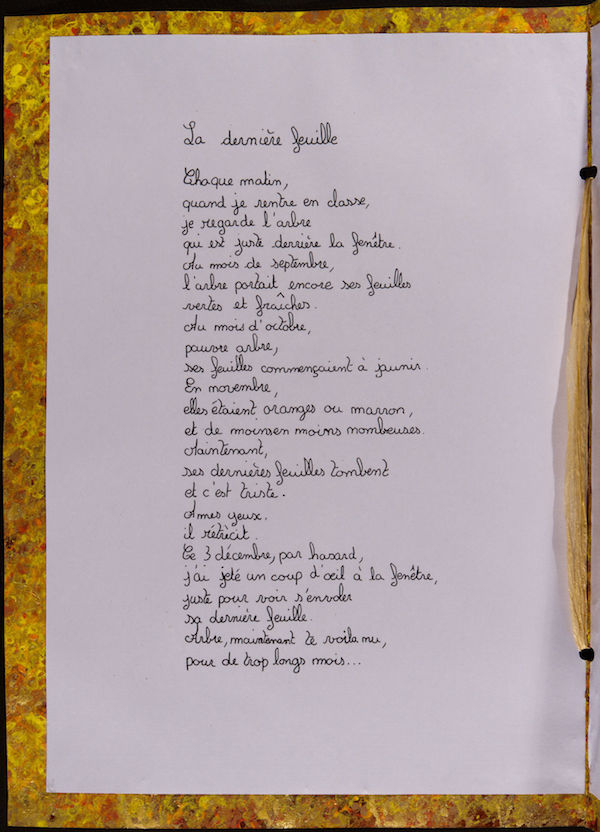 La dernière feuille
Chaque matin,
quand je rentre en classe,
je regarde l'arbre
qui est juste derrière la fenêtre.
Au mois de septembre,
l'arbre portait encore ses feuilles
vertes et fraîches.
Au mois d'octobre,
pauvre arbre,
ses feuilles commençaient à jaunir.
En novembre,
elles étaient oranges ou marron,
et de moinsen moins nombeuses.
Maintenant,
ses dernières feuilles tombent
et c'est triste.
A mes yeux.
il rétrècit.
Ce 3 décembre, par hasard,
j'ai jeté un coup d'œil à la fenêtre,
juste pour voir s'envoler
sa dernière feuille.
Arbre, maintenant te voila nu,
pour de trop longs mois...